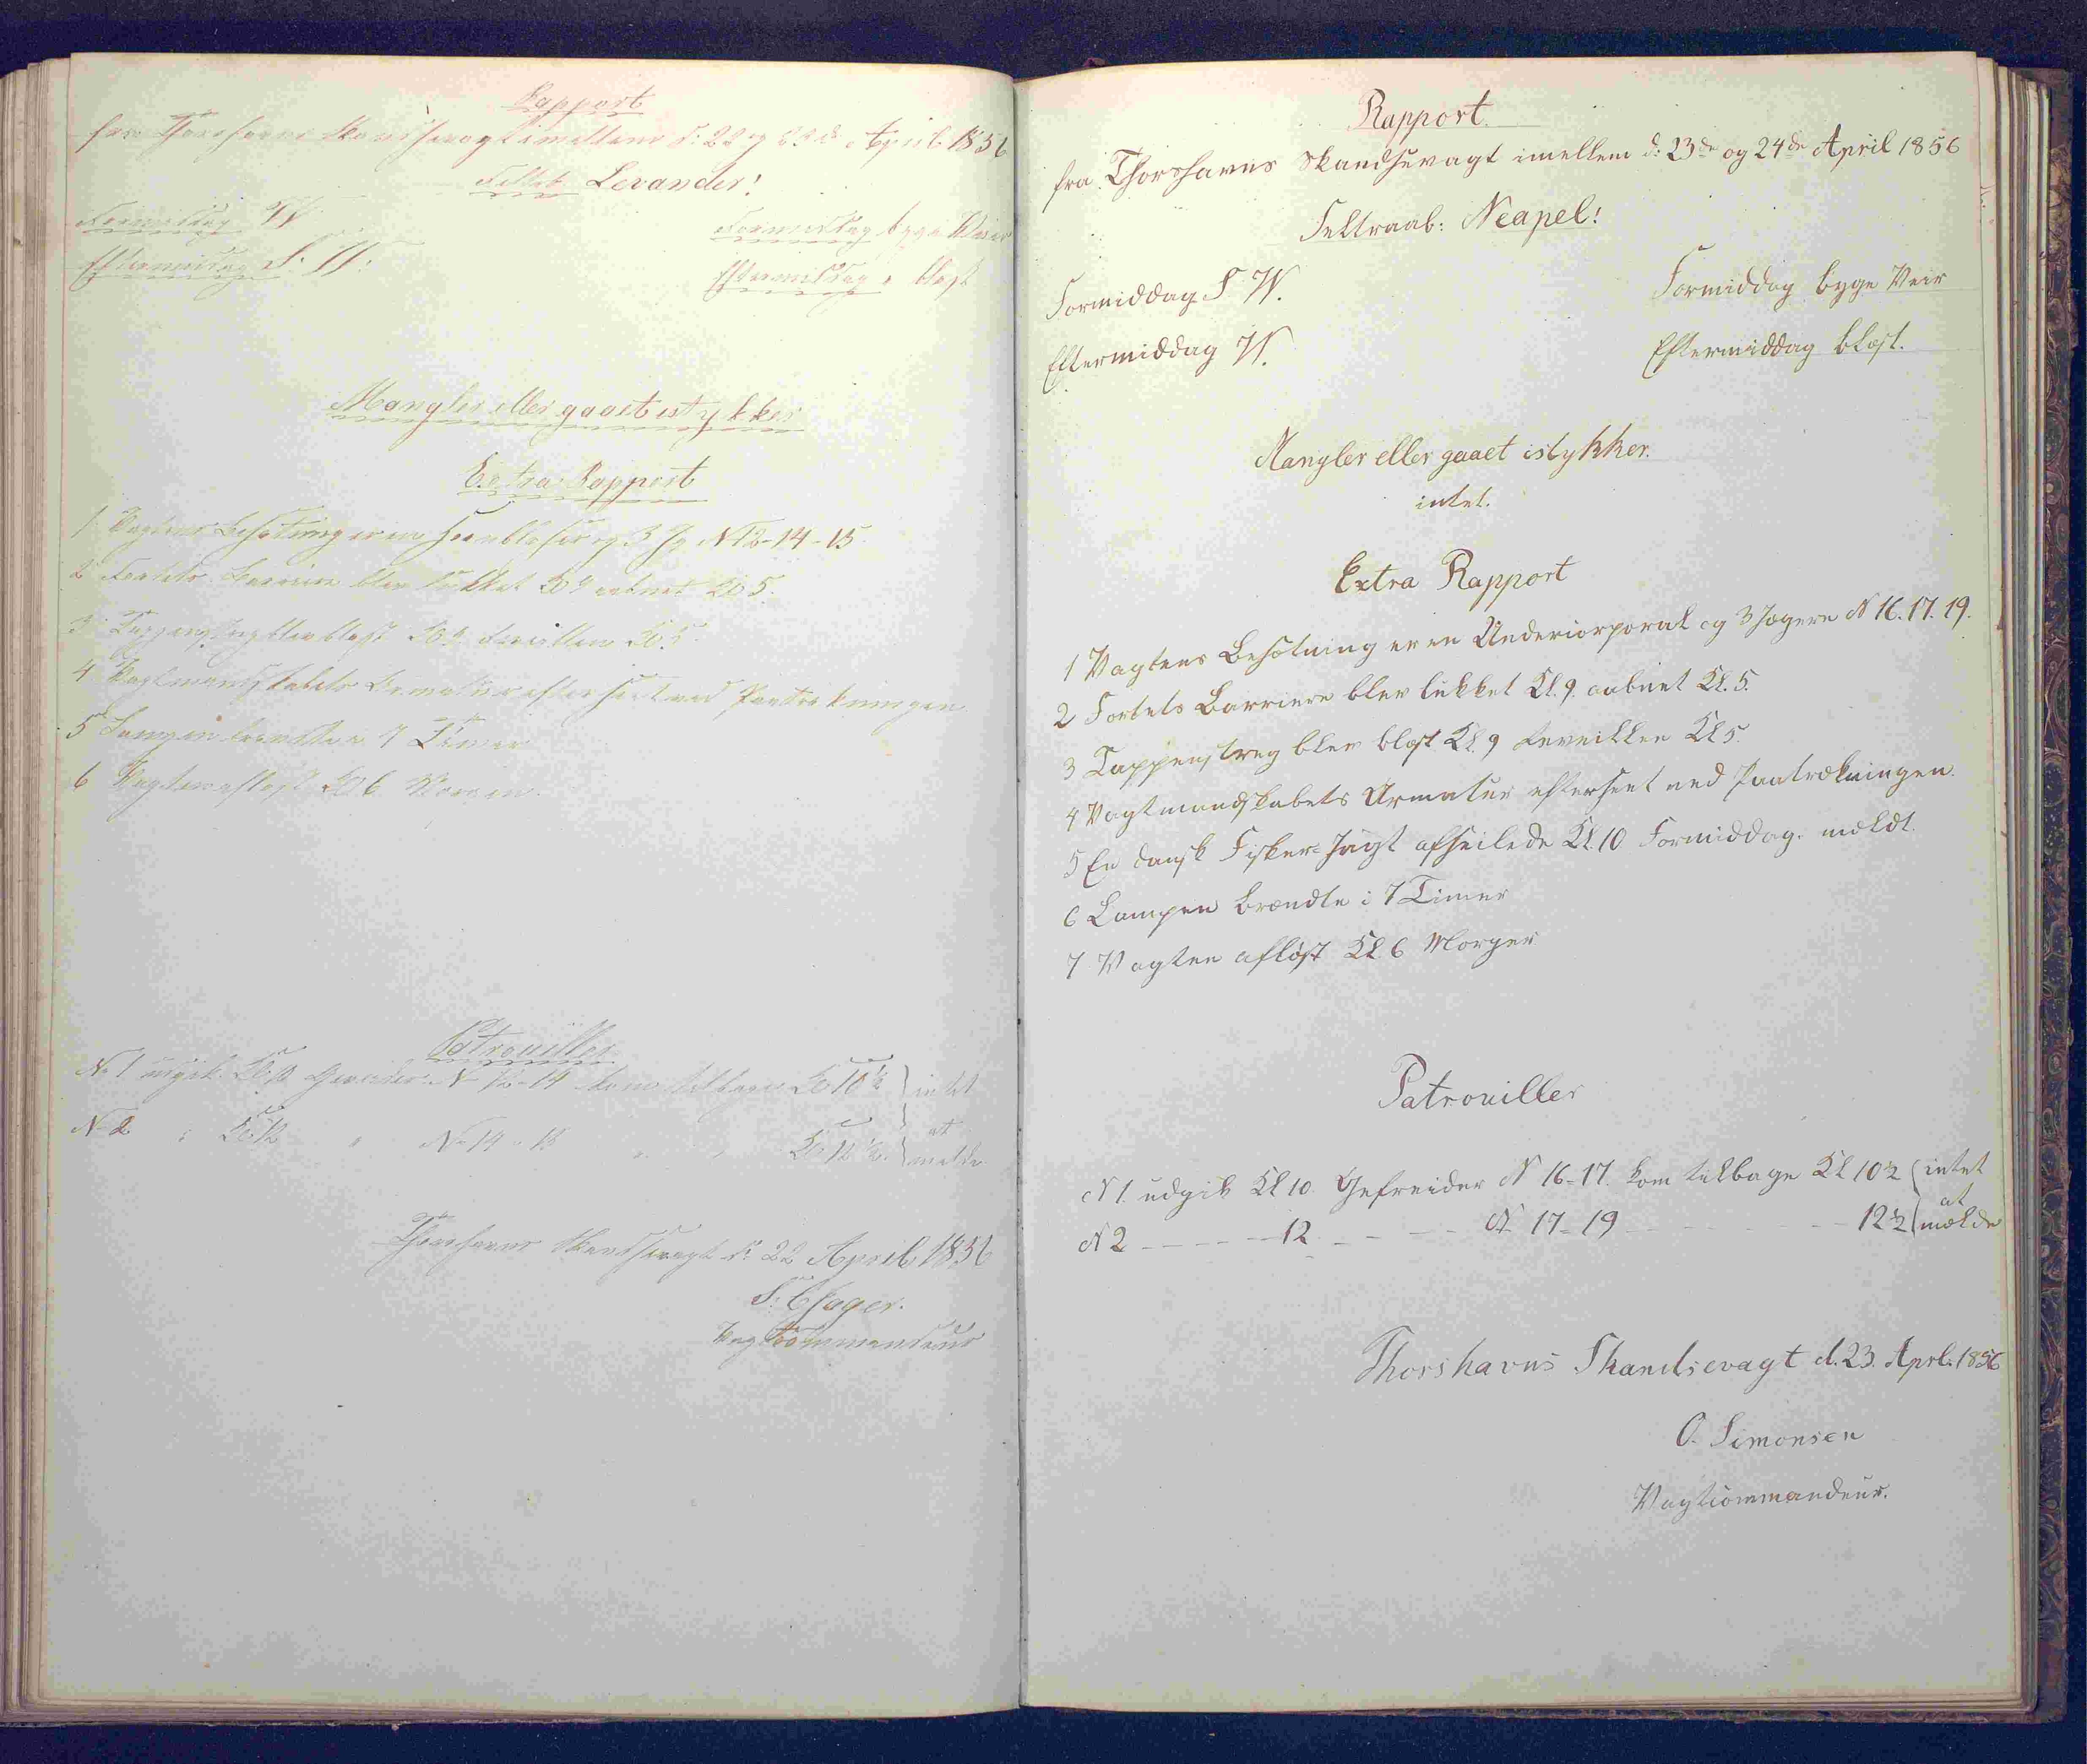 Rapport
fra Thorshavns Skandsevagt imellem d: 22 og 23de April 1856
Feltrb Levander!
Formiddag W
Eftermiddag S. W:
Formiddag byge Veir
Eftermiddag " blæst
Mangler eller gaaet istykker
Extra Rapport
1 Vagtens Besætning er en Hornblæser og 3 Jg N 13-14-15
2 Fortets Barriere blev lukket Kl 9 aabnet Kl 5.
3 Tappenstreg blev blæst Kl 9 Reveillen Kl. 5
4 Vagtmandskabets Armatur efterseet ved Paatrækningen
5 Lampen brændte i 7 Timer
6 Vagten afløst Kl 6 Morgen.
Patrouiller
N 1 udgik Kl. 10 Gefreider N 13-14 kom tilbage Kl 10½ intet
at
N 2 " Kl. 12 " N 14-15 " " Kl 12½ melde
Thorshavns Skandsevagt d: 22 April 1856
Vagtcommandeur
Rapport.
fra Thorshavns Skandsevagt imellem d: 23de og 24de April 1856
Feltraab: Neapel!
Formiddag S W.
Eftermiddag W.
Formiddag byge Veir
Eftermiddag blæst.
Mangler eller gaaet istykker.
intet.
Extra Rapport
1 Vagtens Besætning er en Undercorporal og 3 Jægere N 16. 17. 19.
2 Fortets Barriere blev lukket Kl. 9. aabnet Kl. 5.
3 Tappenstreg blev blæst Kl. 9 Reveillen Kl 5.
4 Vagtmandskabets Armatur efterseet ved Paatrækningen.
5 En dansk Fisker-Jagt afseilede Kl. 10 Formiddag. meldt.
6 Lampen brændte i 7 Timer
7 Vagten afløst Kl 6 Morgen
Patrouiller
N 1. udgik Kl 10. Gefreider N 16-17. kom tilbage Kl 10½ intet
at
N 2 - - - - - 12 - - - - N 17-19 - - - - - 12½ mælde
Thorshavns Skandsevagt d. 23. Aprl. 1856
O. Simonsen
Vagtcommandeur.